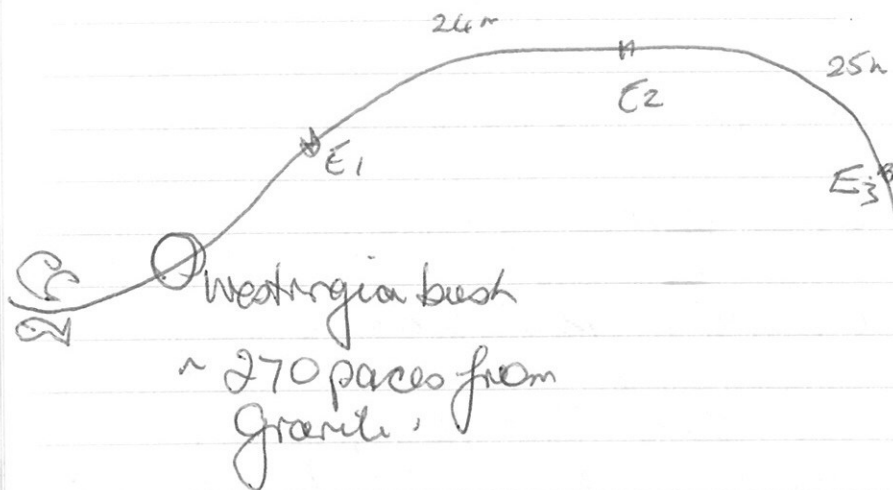 24m
E2
25m
E1
E3
Westringia bush
~ 270 paces from
Granite.